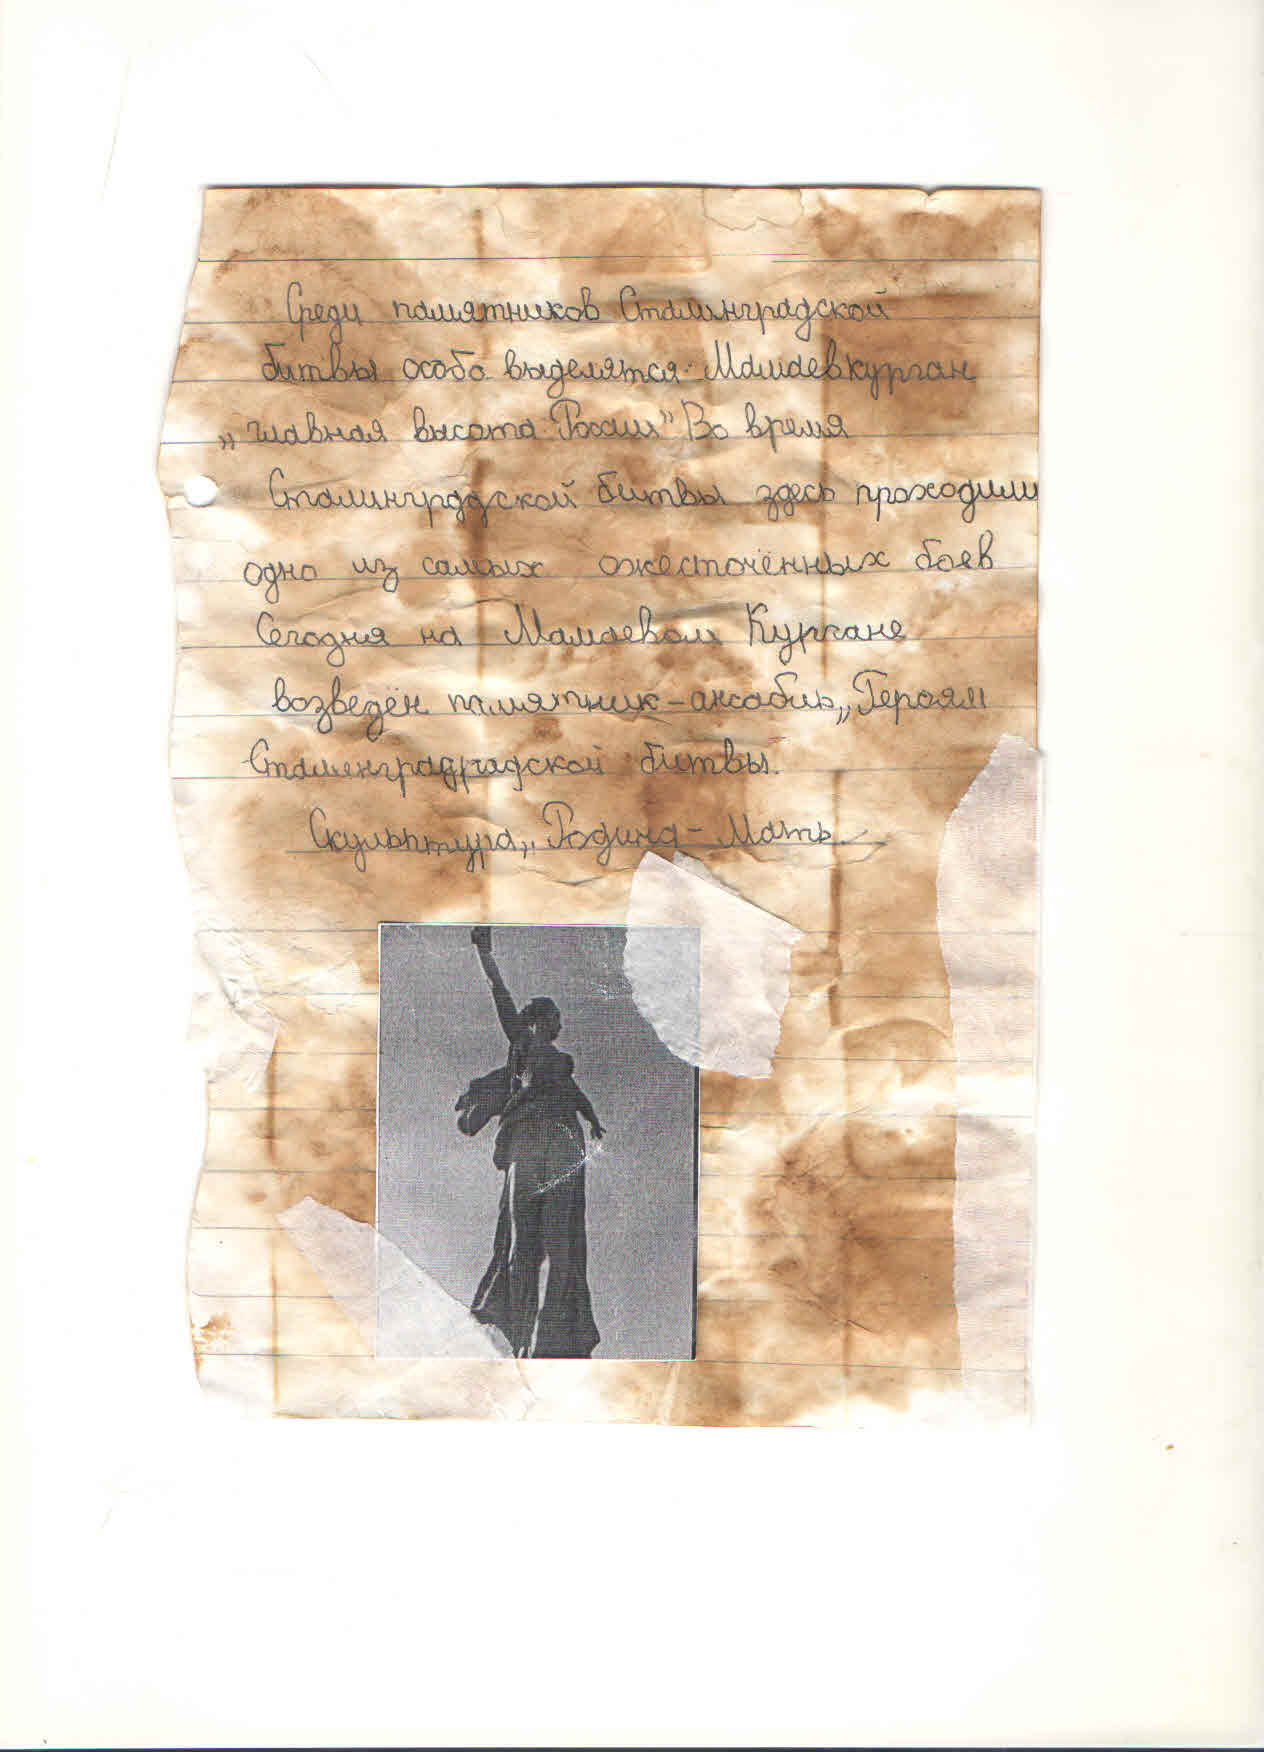 Среди памятников Сталинградской
битвы особо выделятся Мамаевкурган
„главная высота России" Во время
Сталинградской битвы здесь проходили
одно из самых ожесточённых боев
Сегодня на Мамаевом Кургане
возведён памятник-ансабль „Героям
Сталенградградской битвы.
Скульптура „Родина-Мать.